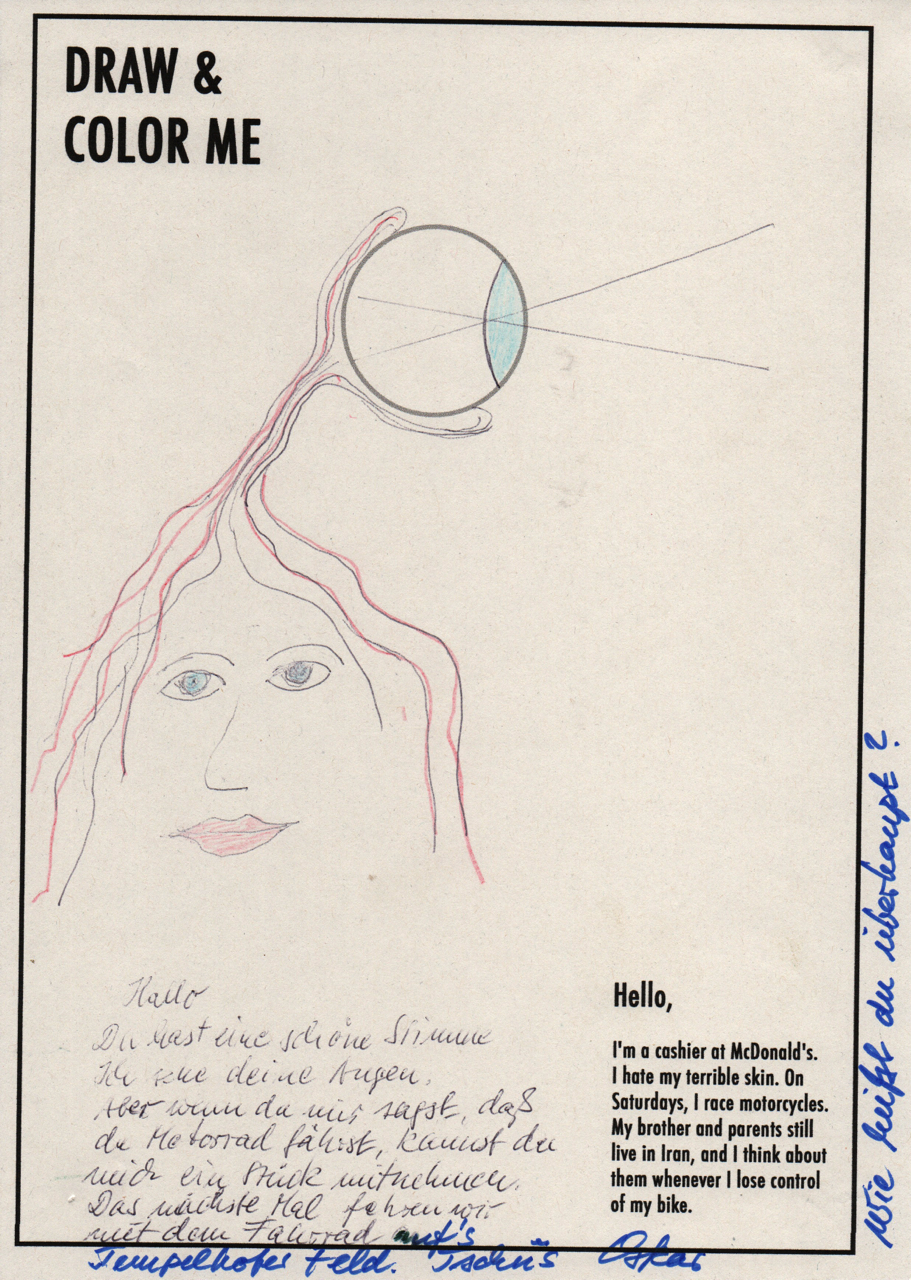 DRAW &
COLOR ME
Hallo
Du hast eine schöne Stimme
Ich sehe deine Augen.
Aber wenn du mir sagst, daß
du Motorrad fährst, kannst du
mich ein Stück mitnehmen.
Das nächste Mal fahren wir
mit dem Fahrrad auf's
Tempelhofer Feld. Tschüs Oskar
Hello,
I'm a cashier at McDonald's.
I hate my terrible skin. On
Saturdays, I race motorcycles.
My brother and parents still
live in Iran, and I think about
them whenever I lose control
of my bike.
Wie heißt du überhaupt?